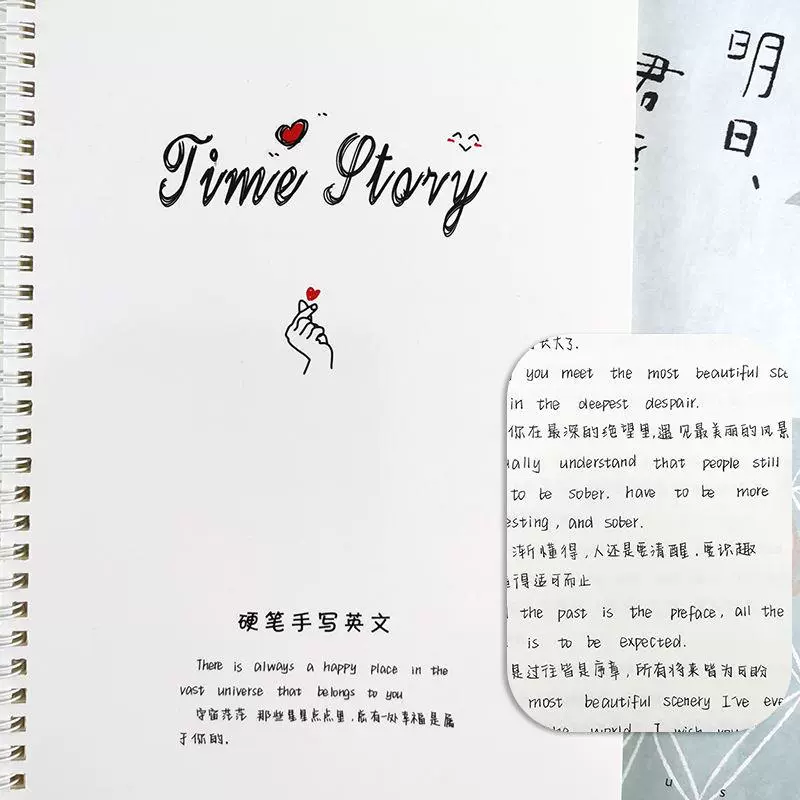 Time Story
硬笔手写英文
There is always a happy place in the
vast universe that belongs to you
宇宙茫茫 那些星星点点里，总有一处幸福是属
于你的.
明日、
君
长大了.
you meet the most beautiful sce
in the deepest despair.
你在最深的绝望里,遇见最美丽的风景
ually understand that people still
to be sober. have to be more
esting, and sober.
渐懂得，人还是要清醒，要识趣
懂得适可而止
the past is the preface, all the
is to be expected.
是过往皆是序章，所有将来皆为可盼
most beautiful scenery I've eve
the world, I wish you
u s